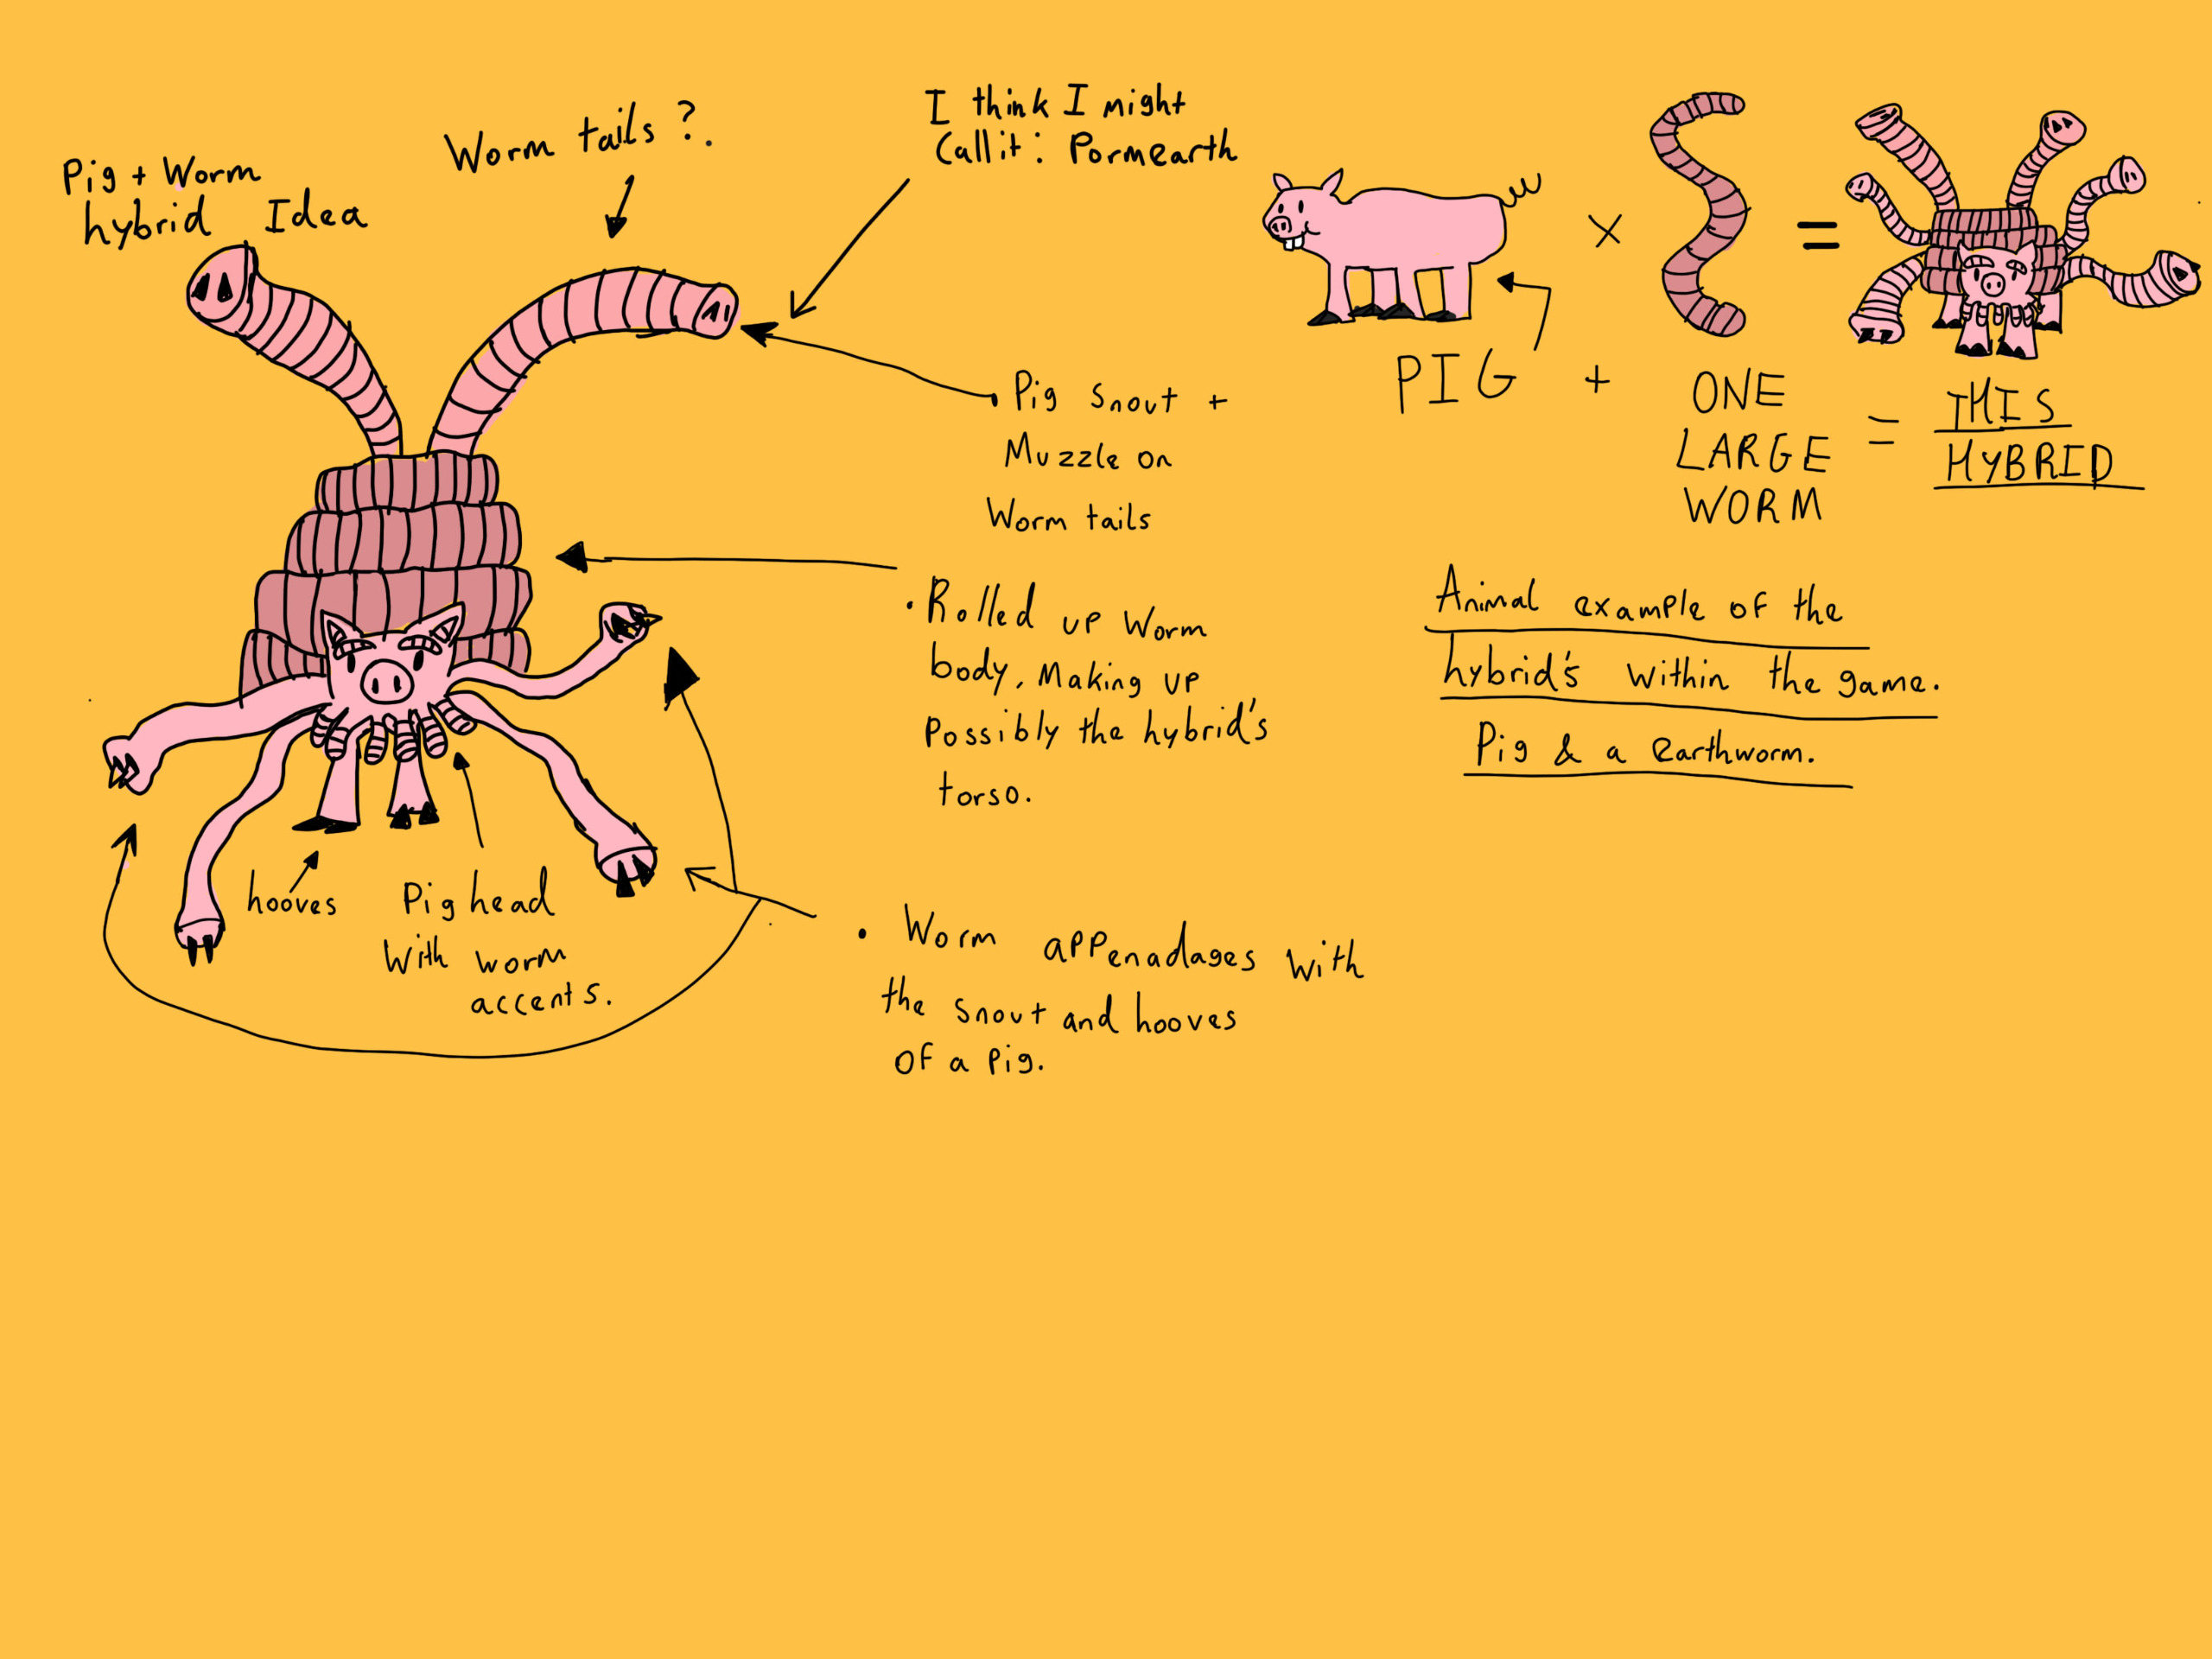 Pig + Worm
hybrid Idea
Worm tails ?.
I think I might
Call it: Pormearth
• Pig Snout +
Muzzle on
Worm tails
• Rolled up Worm
body, Making up
possibly the hybrid's
torso.
• Worm appenadages with
the snout and hooves
of a pig.
hooves
Pig head
With worm
accents.
x
=
PIG
+
ONE
LARGE
WORM
=
THIS
HYBRID
Animal example of the
hybrid's within the game.
Pig & a earthworm.